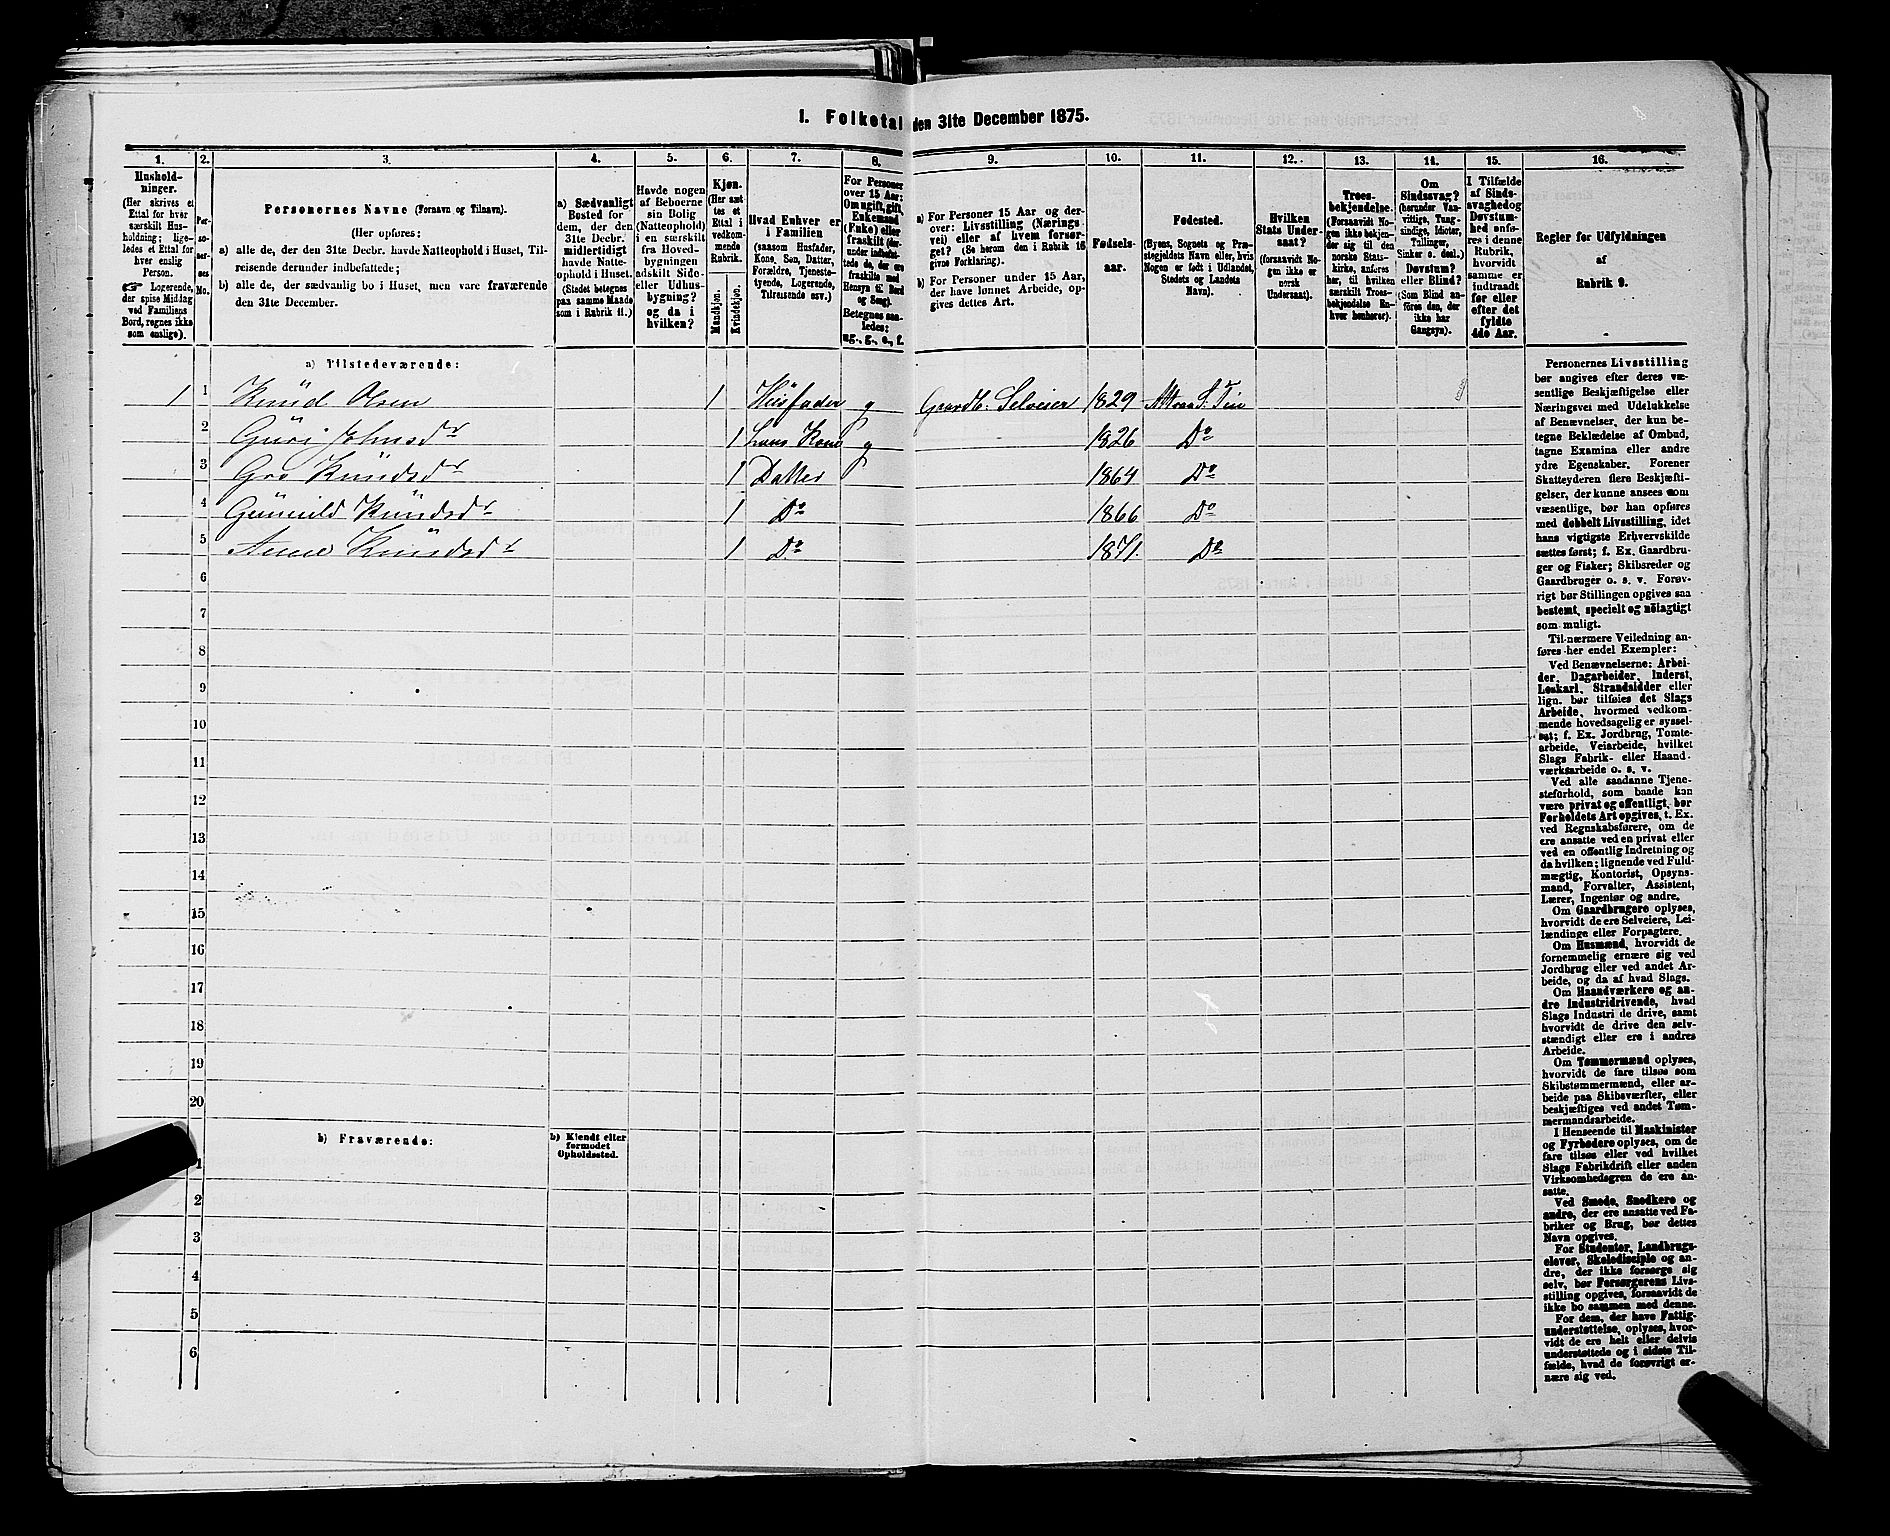 1. Folketal den 31te December 1875.
1.
2.
3.
4.
5.
6.
7.
8.
9.
10.
11.
12.
13.
14.
15.
16.
Hushold-
ninger.
(Her skrives et
Ettal for hver
særskilt Hus-
holdning; lige-
ledes et Ettal for
hver enslig
Person.
☞ Logerende,
der spise Middag
ved Familiens
Bord, regnes ikke
som enslige).
Per-
so-
ner-
nes
No.
Personernes Navne (Fornavn og Tilnavn).
(Her opføres:
a) alle de, der den 31te Decbr. havde Natteophold i Huset, Til-
reisende derunder indbefattede;
b) alle de, der sædvanlig bo i Huset, men vare fraværende
den 31te December.
a) Sædvanligt
Bosted for
dem, der den
31te Decbr.
midlertidigt
havde Natte-
ophold i Huset.
(Stedet betegnes
paa samme Maade
som i Rubrik 11.)
Havde nogen
af Beboerne
sin Bolig
(Natteophold)
i en særskilt
fra Hoved-
bygningen
adskilt Side-
eller Udhus-
bygning?
og da i
hvilken?
Kjøn.
(Her sæt-
tes et
Ettal i
vedkom-
mende
Rubrik.
Mandkjøn.
Kvindekjøn.
Hvad Enhver er
i Familien
(saasom Husfader,
Kone, Søn, Datter,
Forældre, Tjeneste-
tyende, Logerende,
Tilreisende osv.)
For Personer
over 15 Aar:
Om ugift, gift,
Enkemand
(Enke) eller
fraskilt (der-
under indbefat-
tede de, der ere
fraskilte med
Hensyn til Bord
og Seng).
Betegnes saa-
ledes:
ug., g., e., f.
a) For Personer 15 Aar og der-
over: Livsstilling (Nærings-
vei) eller af hvem forsør-
get? (Se herom den i Rubrik 16
givne Forklaring).
b) For Personer under 15 Aar,
der have lønnet Arbeide, op-
gives dettes Art.
Fødsels-
aar.
Fødested.
(Byens, Sognets og Præ-
stegjeldets Navn eller, hvis
Nogen er født i Udlandet,
Stedets og Landets
Navn).
Hvilken
Stats Under-
saat?
(forsaavidt No-
gen ikke er
norsk
Undersaat).
Troes-
bekjendelse.
(Forsaavidt No-
gen ikke bekjen-
der sig til den
norske Stats-
kirke, anføres
her, til hvilken
særskilt Troes-
bekjendelse En-
hver henhører).
Om
Sindssvag?
(herunder Van-
vittige, Tung-
sindige, Idioter,
Tullinger,
Sinker o. desl.)
Døvstum?
eller Blind?
(Som Blind an-
føres den, der
ikke har
Gangsyn).
I Tilfælde
af Sinds-
svaghed og
Døvstum-
hed anfø-
res i denne
Rubrik,
hvorvidt
samme er
indtraadt
før eller
efter det
fyldte
4de Aar.
Regler for Udfyldningen
af
Rubrik 9.
a) Tilstedeværende:
1 1 Knüd Olsen 1 Hüsfader g Gaardb. Selveier 1829 S. Tin
2 Güri Johnsdr 1 hans Kone g 1826 Do
3 Gro Knüdsdr 1 Datter 1864 Do
4 Günnild Knüdsdr 1 Do 1866 Do
5 Anne Knüdsdr 1 Do 1871. Do
6
7
8
9
10
11
12
13
14
15
16
17
18
19
20
b) Fraværende:
b) Kjendt eller
formodet
Opholdssted.
1
2
3
4
5
6
Personernes Livsstilling
bør angives efter deres væ-
sentlige Beskjæftigelse eller
Næringsvei med Udelukkelse
af Benævnelser, der kun be-
tegne Beklædelse af Ombud,
tagne Examina eller andre
ydre Egenskaber. Forener
Skatteyderen flere Beskjæfti-
gelser, der kunne ansees som
væsentlige, bør han opføres
med dobbelt Livsstilling, idet
hans vigtigste Erhvervskilde
sættes først; f. Ex. Gaardbru-
ger og Fisker; Skibsreder og
Gaardbruger o. s. v. Forøv-
rigt bør Stillingen opgives saa
bestemt, specielt og nöiagtigt
som muligt.
Til nærmere Veiledning an-
føres her endel Exempler:
Ved Benævnelserne: Arbei-
der, Dagarbeider, Inderst,
Løskarl, Strandsidder eller
lign. bør tilføies det Slags
Arbeide, hvormed vedkom-
mende hovedsagelig er syssel-
sat; f. Ex. Jordbrug, Tomte-
arbeide, Veiarbeide, hvilket
Slags Fabrik- eller Haand-
værksarbeide o. s. v.
Ved alle saadanne Tjene-
steforhold, som baade kan
være privat og offentligt, bør
Forholdets Art opgives, t. Ex.
ved Regnskabsførere, om de
ere ansatte ved en privat eller
ved en offentlig Indretning og
da hvilken; lignende ved Fuld-
mægtig, Kontorist, Opsyns-
mand, Forvalter, Assistent,
Lærer, Ingeniør og andre.
Om Gaardbrugere oplyses,
hvorvidt de ere Selveiere, Lei-
lændinge eller Forpagtere.
Om Husmænd, hvorvidt de
fornemmelig ernære sig ved
Jordbrug eller ved andet Ar-
beide, og da af hvad Slags.
Om Haandværkere og an-
dre Industridrivende, hvad
Slags Industri de drive, samt
hvorvidt de drive den selv-
stændigt eller ere i andres
Arbeide.
Om Tømmermænd oplyses,
hvorvidt de fare tilsøs som
Skibstømmermænd, eller ar-
beide paa Skibsværfter, eller
beskjæftiges ved andet Tøm-
mermandsarbeide.
I Henseende til Maskinister
og Fyrbødere oplyses, om de
fare tilsøs eller ved hvilket
Slags Fabrikdrift eller anden
Virksomhedsgren de ere an-
satte.
Ved Smede, Snedkere og
andre, der ere ansatte ved Fa-
briker og Brug, bør dettes
Navn opgives.
For Studenter, Landbrugs-
elever, Skoledisciple og an-
dre, der ikke forsørge sig
selv, bør Forsørgerens Livs-
stilling opgives, forsaavidt de
ikke bo sammen med denne.
For dem, der have Fattig-
understøttelse, oplyses, hvor-
vidt de ere helt eller delvis
understøttede og i sidste Til-
fælde, hvad de forøvrigt er-
nære sig ved.